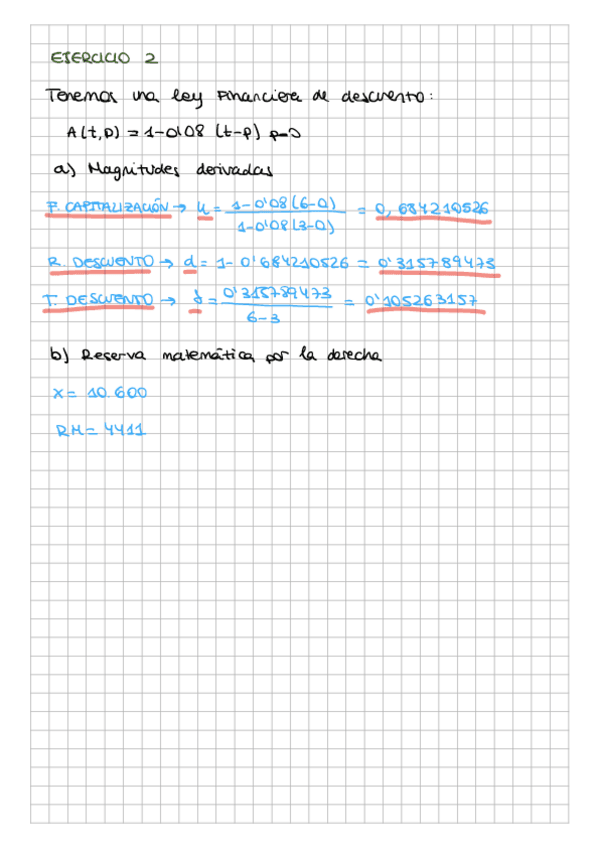 EJERCICIO 2
Tenemos una ley Financiera de descuento:
A(t,p) = 1-0'08 (t-p) p=0
a) Magnitudes derivadas
F. CAPITALIZACIÓN → u = 1-0'08(6-0) / 1-0'08(3-0) = 0,684210526
R. DESCUENTO → d = 1-0'684210526 = 0'315789473
T. DESCUENTO → δ = 0'315789473 / 6-3 = 0'105263157
b) Reserva matemática por la derecha
X = 10.600
RM = 4411